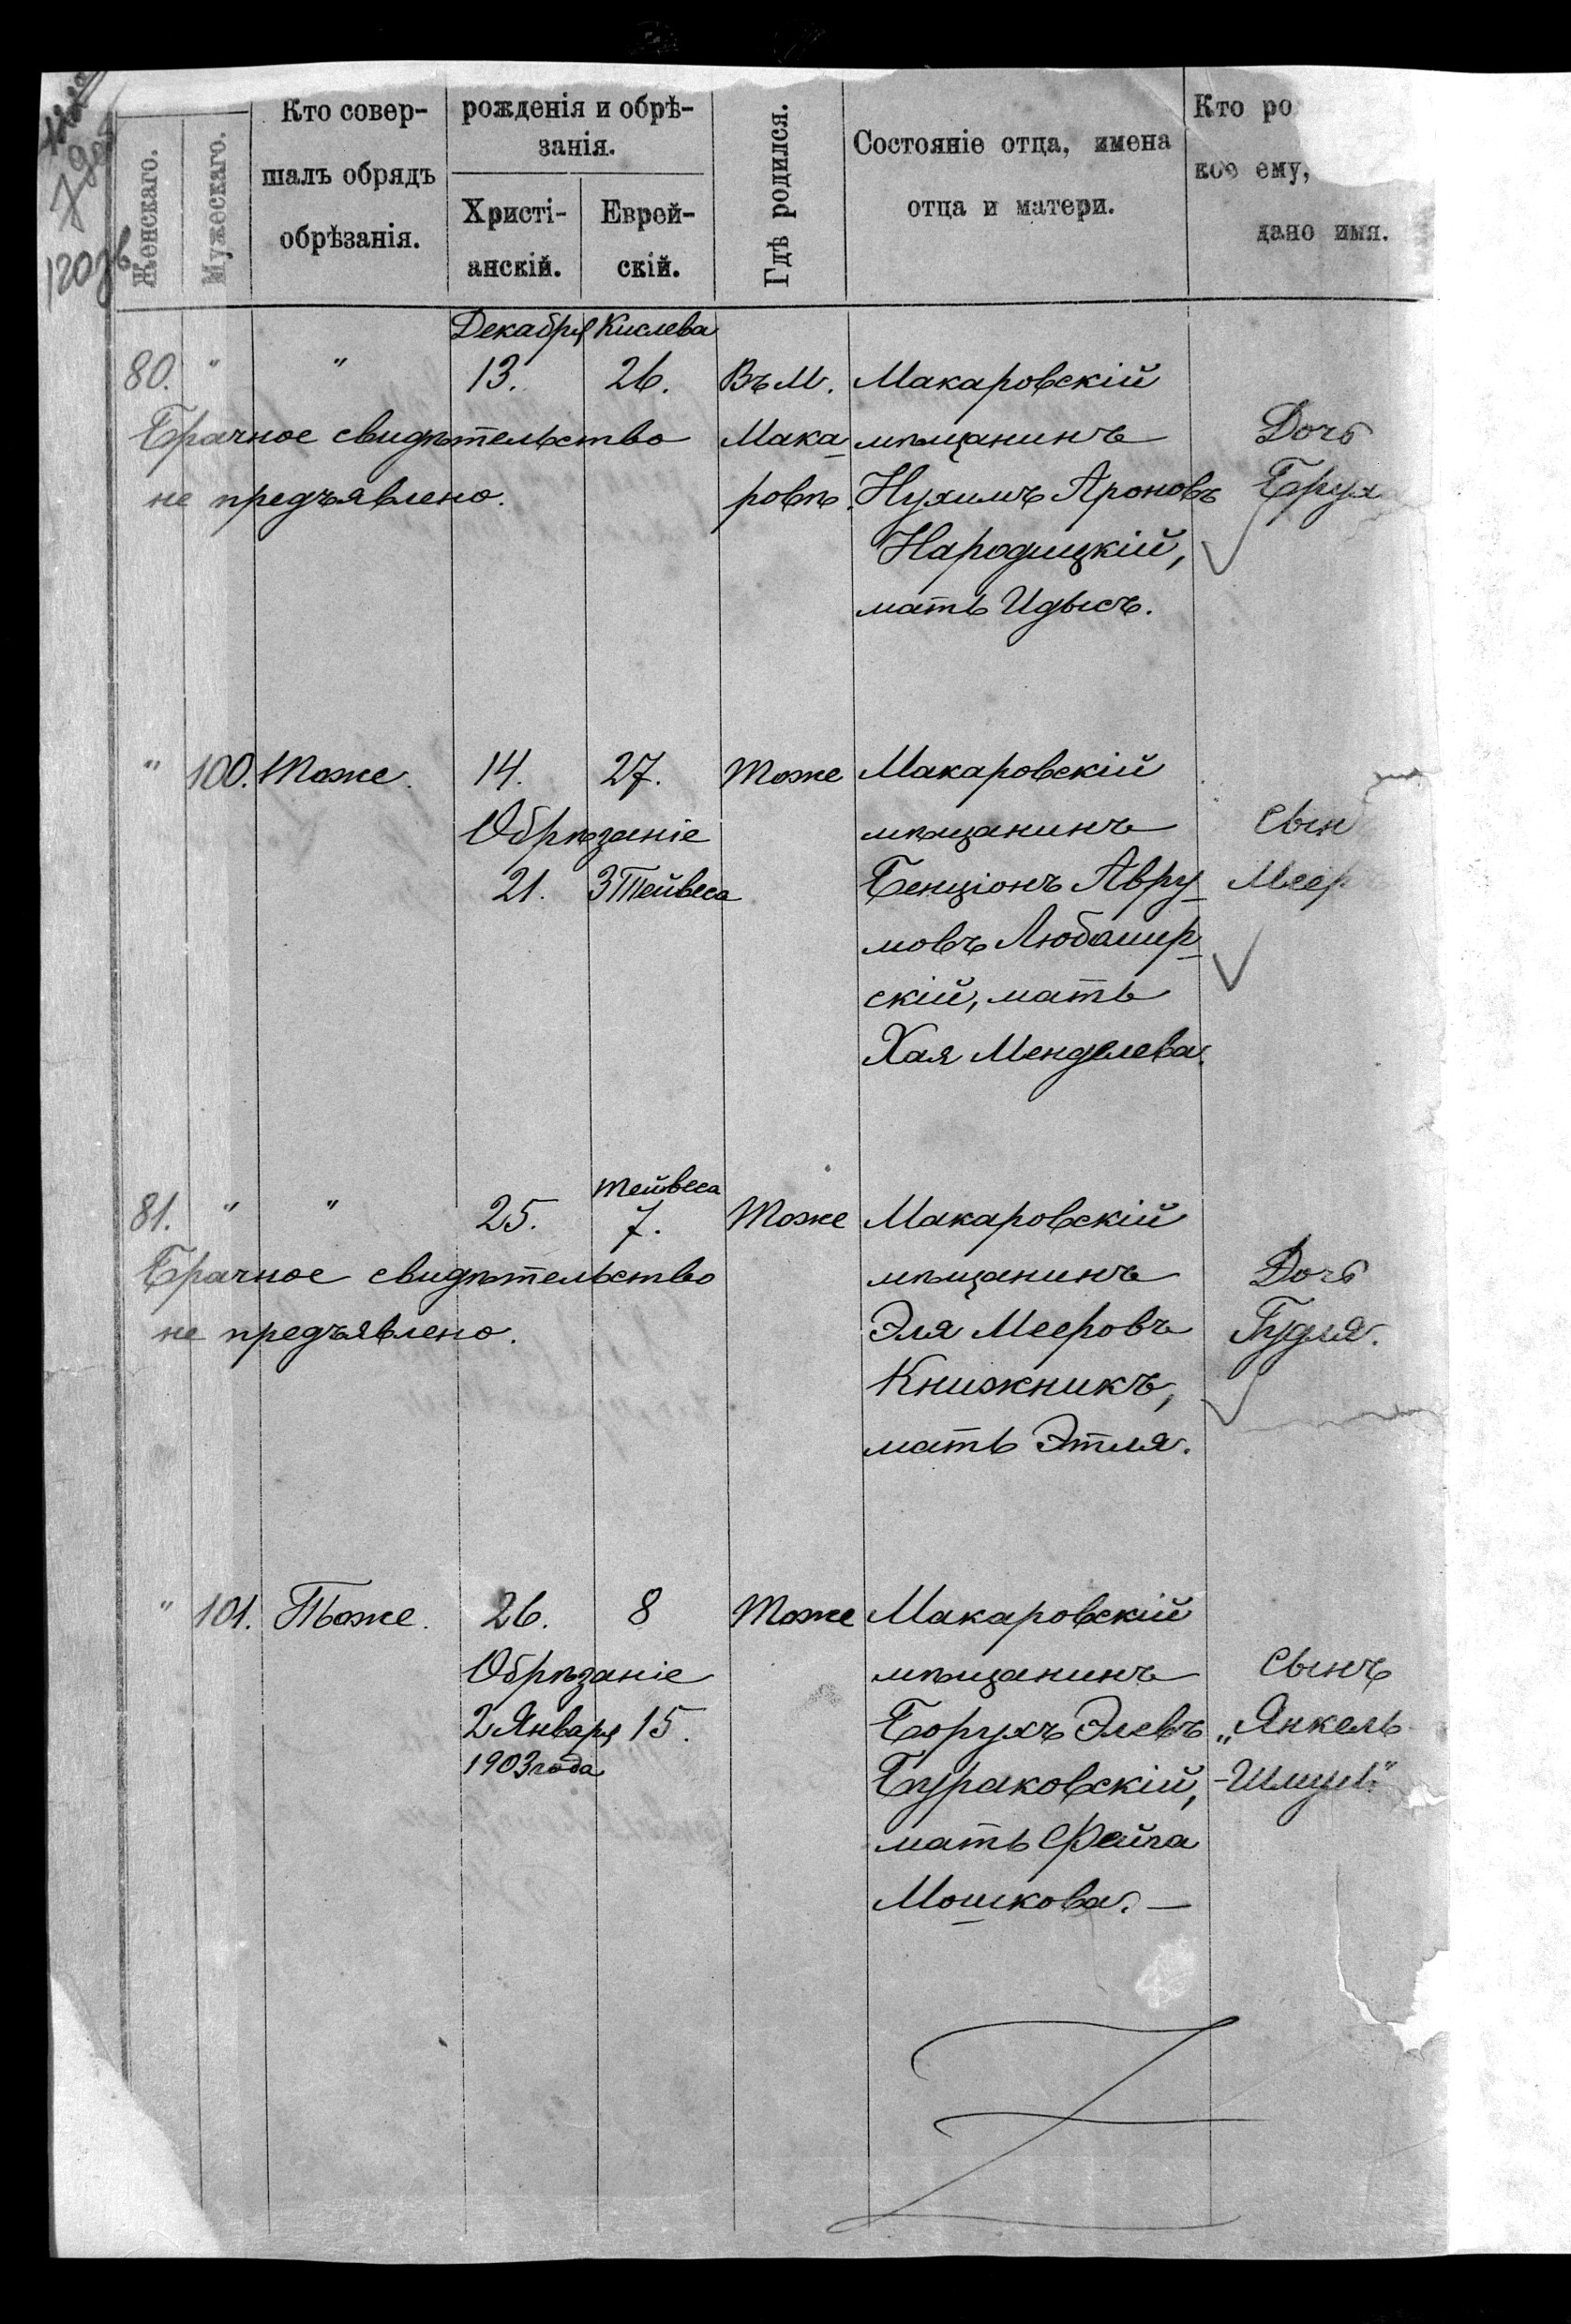 Женскаго.
Мужескаго.
Кто совер-
шалъ обрядъ
обрѣзанія.
рожденія и обрѣ-
занія.
Христі-
анскій.
Еврей-
скій.
Гдѣ родился.
Состояніе отца, имена
отца и матери.
Кто ро
кое ему,
дано имя.
Декабря Кислева
80. " " 13. 26. Въ М. Макаровскій
Брачное свидѣтельство Мака- мѣщанинъ Дочь
не предъявлено. ровѣ. Нухимъ Ароновъ Брух
Народицкій,
мать Идысъ.
" 100. Тоже. 14. 27. Тоже Макаровскій
Обрѣзаніе мѣщанинъ Сын
21. 3 Тейвеса Бенціонъ Авру- Меер
мовъ Любашир-
скій, мать
Хая Менделева.
Тейвеса
81. " " 25. 7. Тоже Макаровскій
Брачное свидѣтельство мѣщанинъ Дочь
не предъявлено. Эля Мееровъ Гудля.
Книжникъ,
мать Этля.
" 101. Тоже. 26. 8 Тоже Макаровскій
Обрѣзаніе мѣщанинъ Сынъ
2 Января 15. Борухъ Элевъ „Янкель
1903 года Бураковскій,
мать Фейга
Мошкова. —